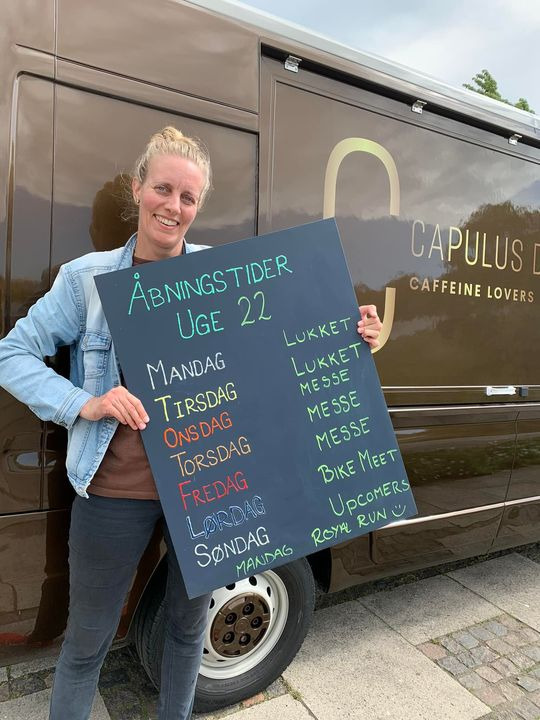 CAPULUS D
CAFFEINE LOVERS
ÅBNINGSTIDER
UGE 22
MANDAG LUKKET
TIRSDAG LUKKET
ONSDAG MESSE
TORSDAG MESSE
FREDAG MESSE
LØRDAG BIKE MEET
SØNDAG UPCOMERS
MANDAG ROYAL RUN ☺